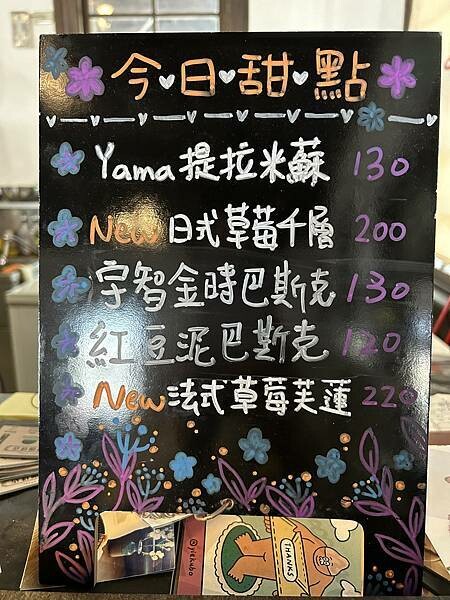 今日甜點
Yama提拉米蘇 130
New日式草莓千層 200
宇智金時巴斯克 130
紅豆泥巴斯克 120
New法式草莓芙蓮 220
THANKS